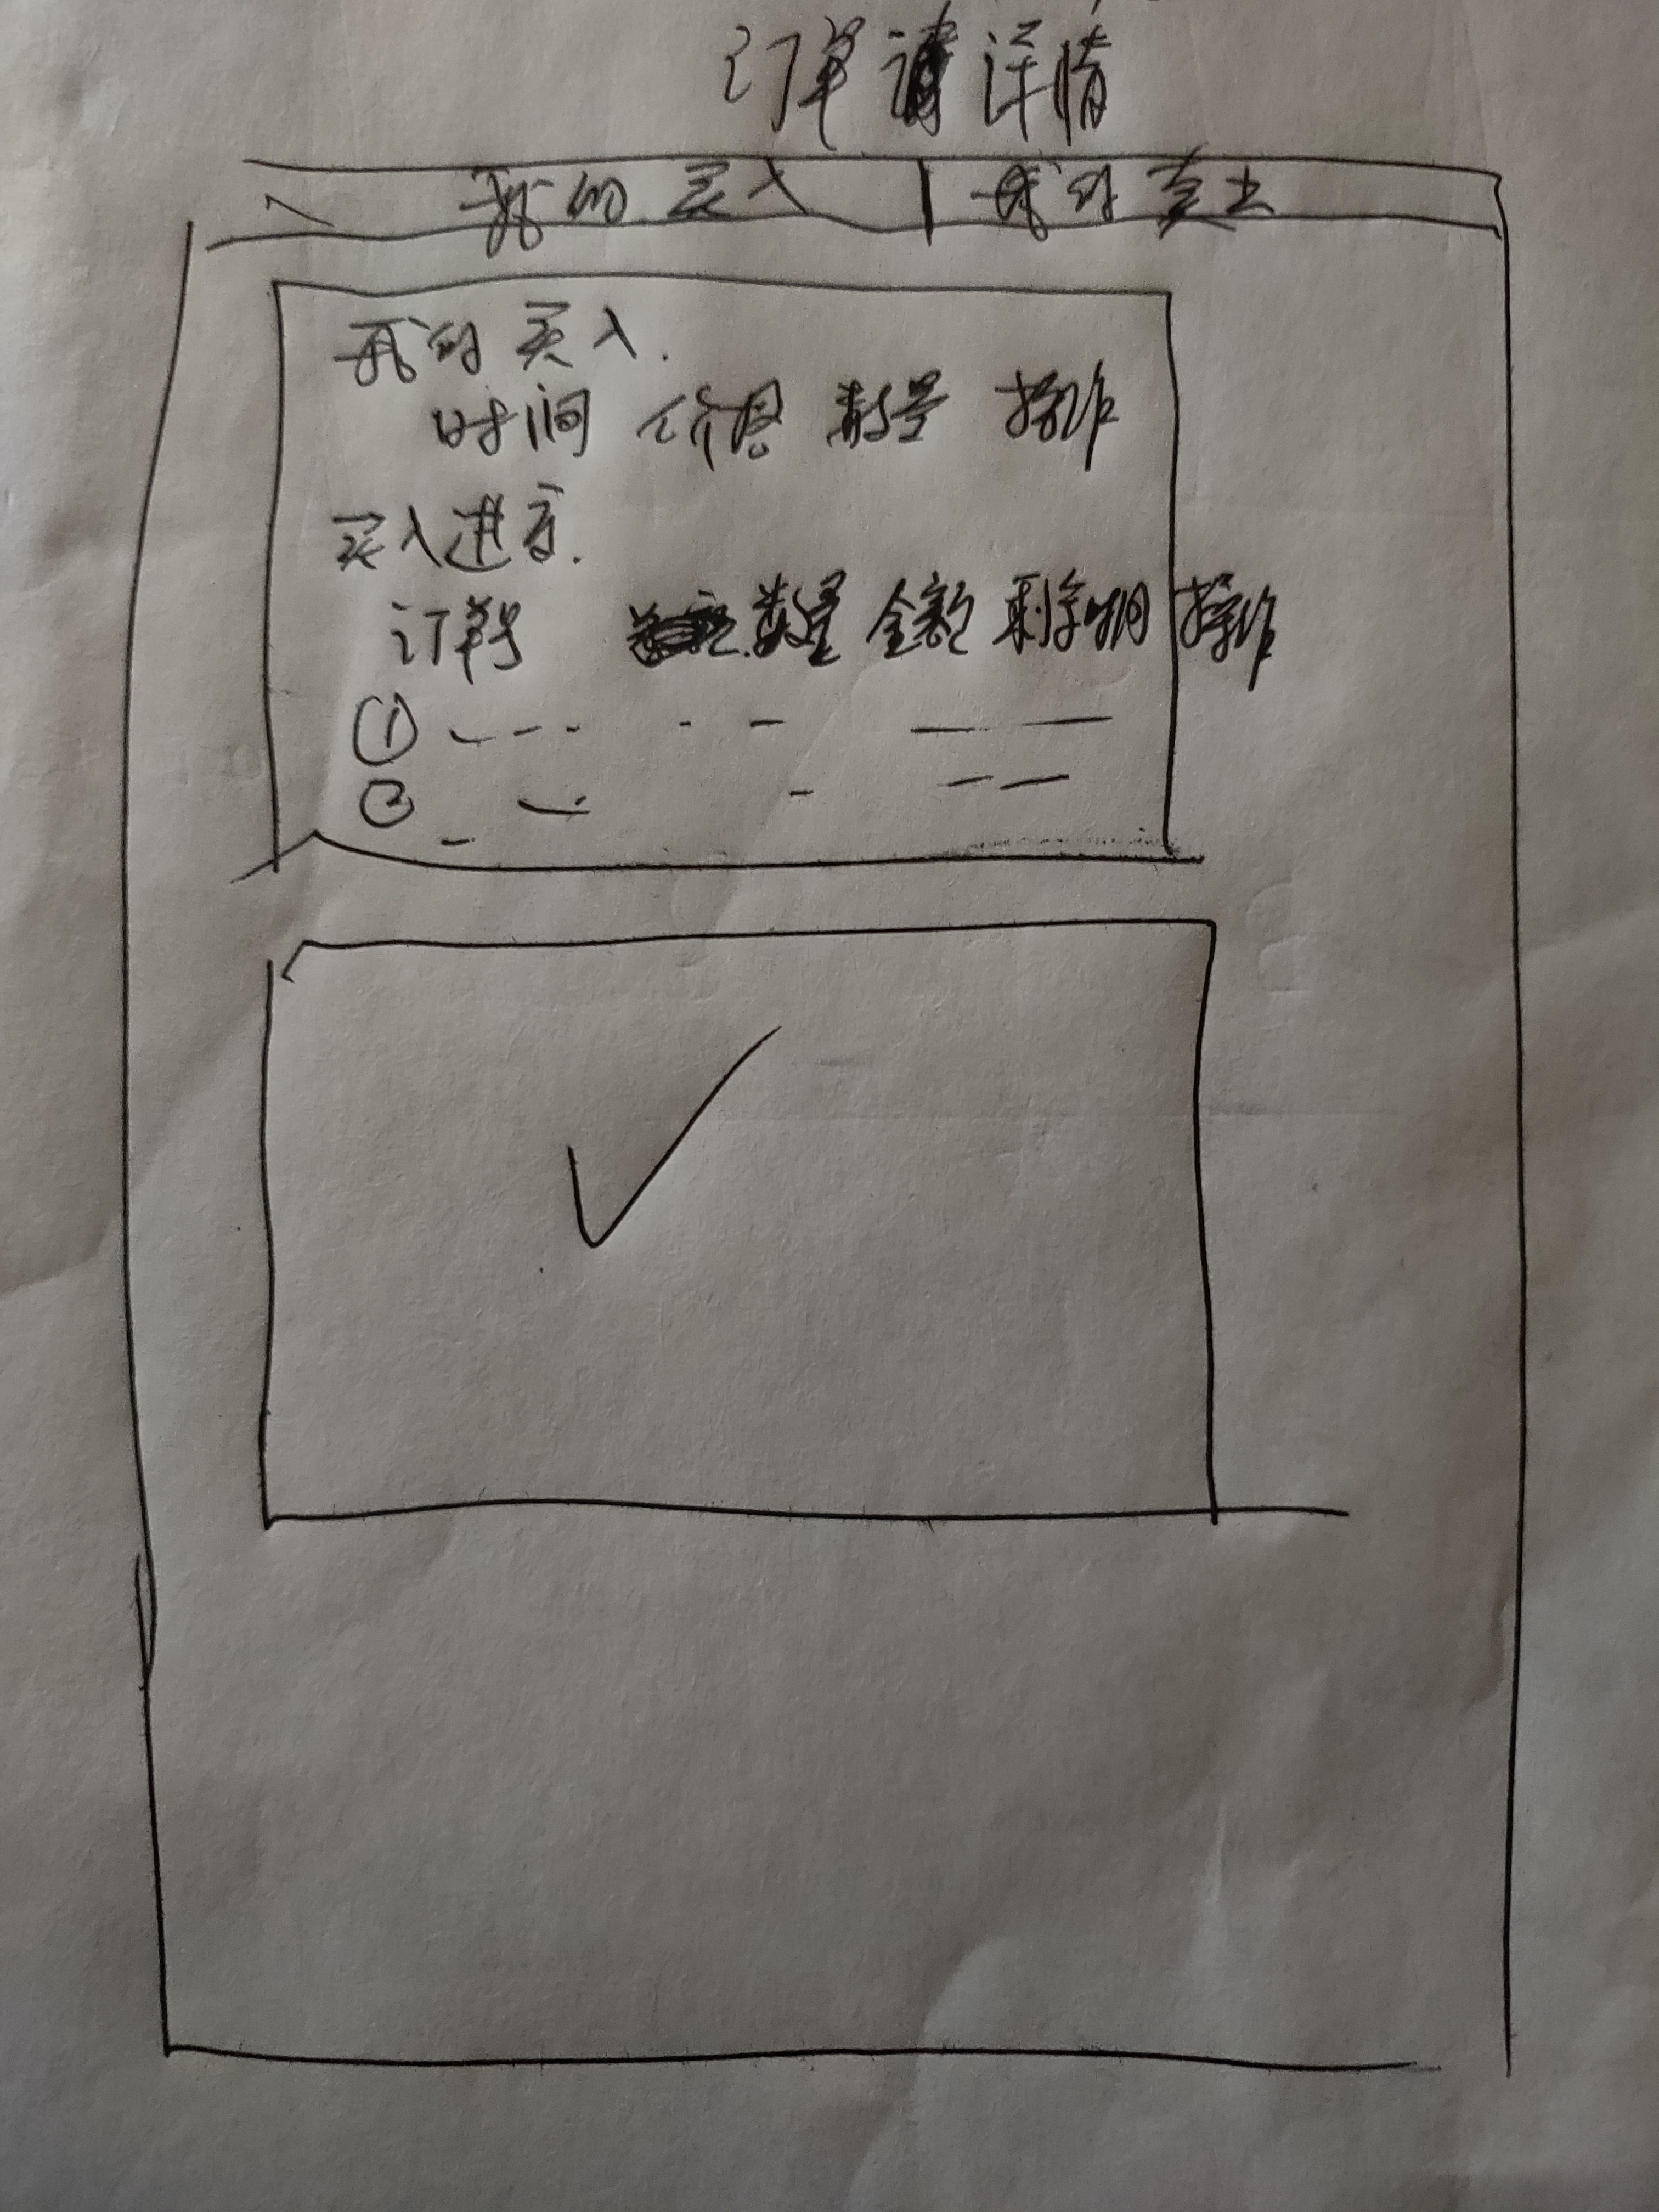 订单详情
我的买入 我的卖出
我的买入.
时间 价格 数量 操作
买入进度.
订单号 数量 金额 剩余时间 操作
①
②